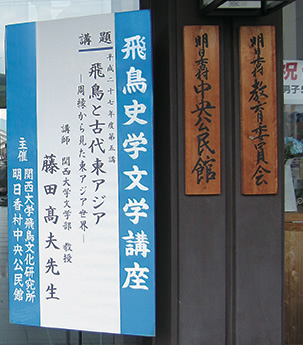 飛鳥史学文学講座
平成二十七年度第五講
講題
飛鳥と古代東アジア
―周縁から見た東アジア世界―
講師 関西大学文学部 教授
藤田髙夫先生
主催
関西大学飛鳥文化研究所
明日香村中央公民館
明日香村教育委員会
明日香村中央公民館
祝
男子